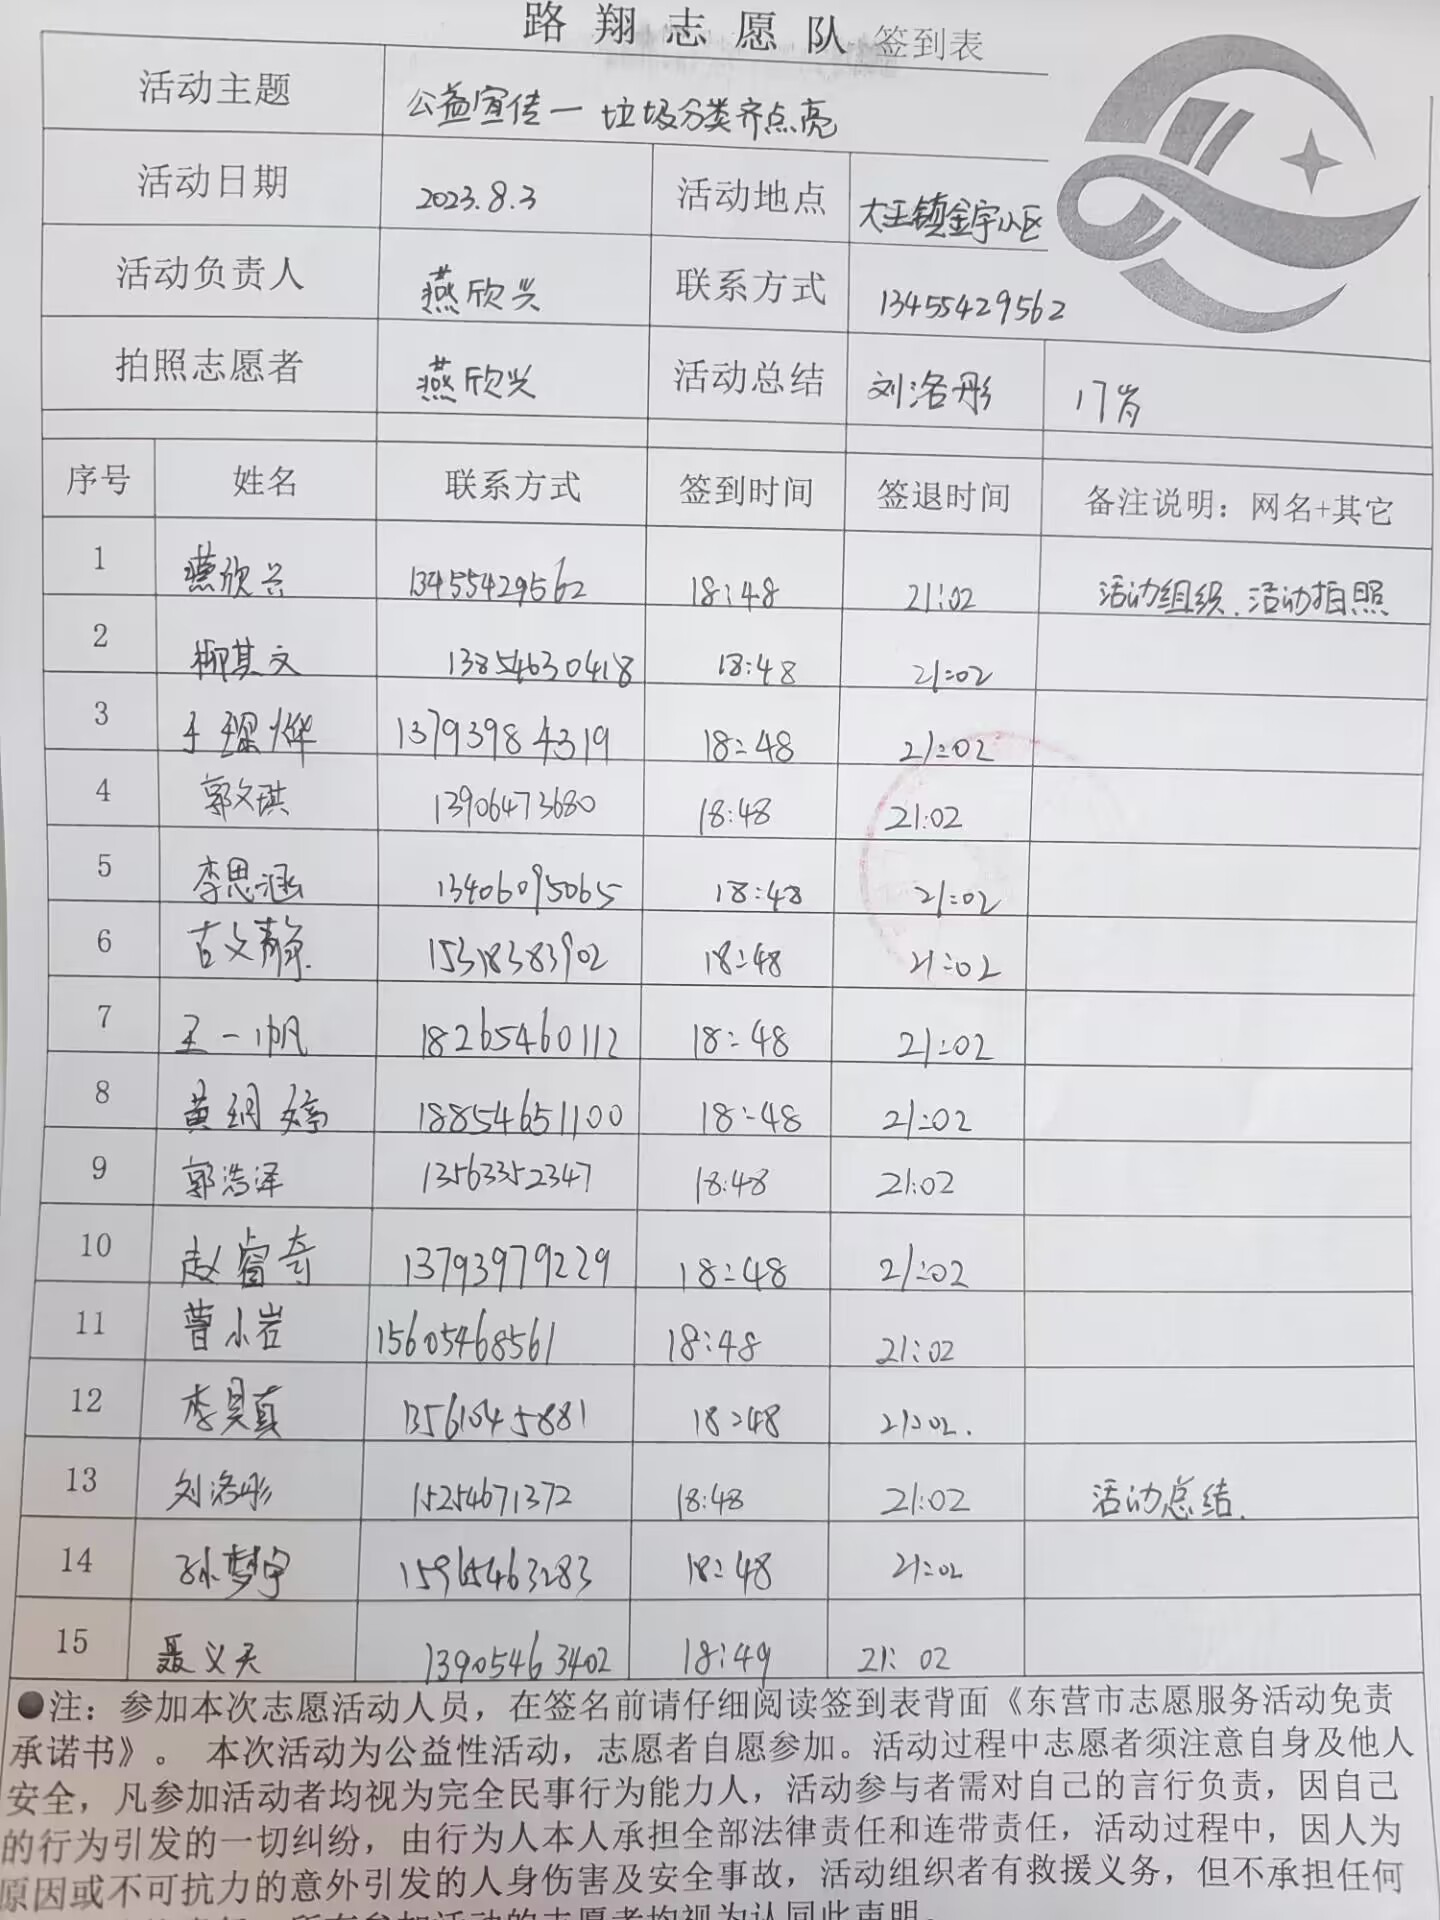 路翔志愿队 签到表
活动主题 公益宣传一 垃圾分类齐点亮
活动日期 2023.8.3 活动地点 大王镇金宇小区
活动负责人 燕欣兴 联系方式 13455429562
拍照志愿者 燕欣兴 活动总结 刘洛彤 17岁
序号 姓名 联系方式 签到时间 签退时间 备注说明：网名+其它
1 燕欣兴 13455429562 18:48 21:02 活动组织、活动拍照
2 柳其文 13854630418 18:48 21:02
3 13793984319 18:48 21:02
4 郭文琪 13906473680 18:48 21:02
5 李思涵 13406095065 18:48 21:02
6 古文静. 15318383902 18:48 21:02
7 王一帆 18265460112 18:48 21:02
8 黄 婷 18854651100 18:48 21:02
9 郭浩泽 13563352347 18:48 21:02
10 赵睿奇 13793979229 18:48 21:02
11 曹小岩 15605468561 18:48 21:02
12 李昊真 13561045881 18:48 21:02.
13 刘洛彤 15254671372 18:48 21:02 活动总结.
14 孙梦宇 15965463283 18:48 21:02
15 聂义天 13905463402 18:49 21:02
●注：参加本次志愿活动人员，在签名前请仔细阅读签到表背面《东营市志愿服务活动免责
承诺书》。 本次活动为公益性活动，志愿者自愿参加。活动过程中志愿者须注意自身及他人
安全，凡参加活动者均视为完全民事行为能力人，活动参与者需对自己的言行负责，因自己
的行为引发的一切纠纷，由行为人本人承担全部法律责任和连带责任，活动过程中，因人为
原因或不可抗力的意外引发的人身伤害及安全事故，活动组织者有救援义务，但不承担任何
所有参加活动的志愿者均视为认同此声明。